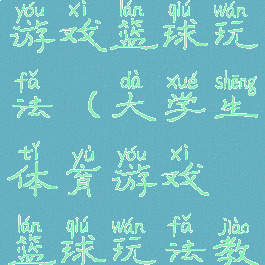 yóu xì lán qiú wán
游戏篮球玩
fǎ dà xué shēng
法（大学生
tǐ yù yóu xì
体育游戏
lán qiú wán fǎ jiào
篮球玩法教